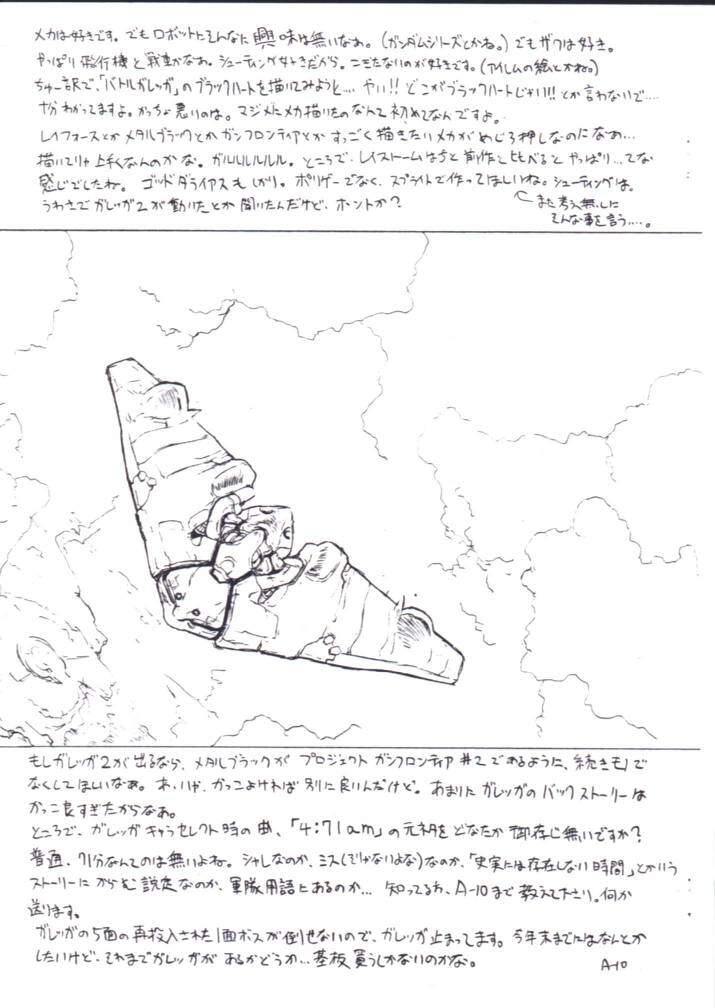 メカは好きです。でもロボットにそんなに興味は無いなぁ。(ガンダムシリーズとかね。)でもザクは好き。
やっぱり飛行機と戦車かなぁ。シューティング好きだから。こぎたないのが好きです。(アイレムの絵とかね。)
ちゅー訳で、「バトルガレッガ」のブラックハートを描いてみようと…やい!!どこがブラックハートじゃい!!とか言わないで…
十分わかってますよ。かっちょ悪いのは。マジメにメカ描いたのなんて初めてなんですよ。
レイフォースとかメタルブラックとかガンフロンティアとかすっごく描きたいメカがめじろ押しなのになぁ…
描いてりゃ上手くなんのかな。ガルルルルルル。ところで、レイストームはちと前作と比べるとやっぱり…てな
感じでしたね。ゴッドダライアスもしかり。ポリゲーでなく、スプライトで作ってほしいね。シューティングは。
うわさでガレッガ2が動いたとか聞いたんだけど、ホントか?
また考え無しに
そんな事を言う…。
もしガレッガ2が出るなら、メタルブラックがプロジェクトガンフロンティア#2であるように、続きモノで
なくしてほしいなぁ。あ、いや、かっこよければ別に良いんだけど。あまりにガレッガのバックストーリーは
かっこ良すぎたからなぁ。
ところで、ガレッガキャラセレクト時の曲、「4:71am」の元ネタをどなたか御存じ無いですか?
普通、71分なんてのは無いよね。シャレなのか、ミス(じゃないよな)なのか、「史実には存在しない時間」とかいう
ストーリーにからむ設定なのか、軍隊用語にあるのか…知ってる方、A-10まで教えて下さい。何か
送ります。
ガレッガの5面の再投入された1面ボスが倒せないので、ガレッガ止まってます。今年末までにはなんとか
したいけど、それまでガレッガがあるかどうか…基板買うしかないのかな。
A-10